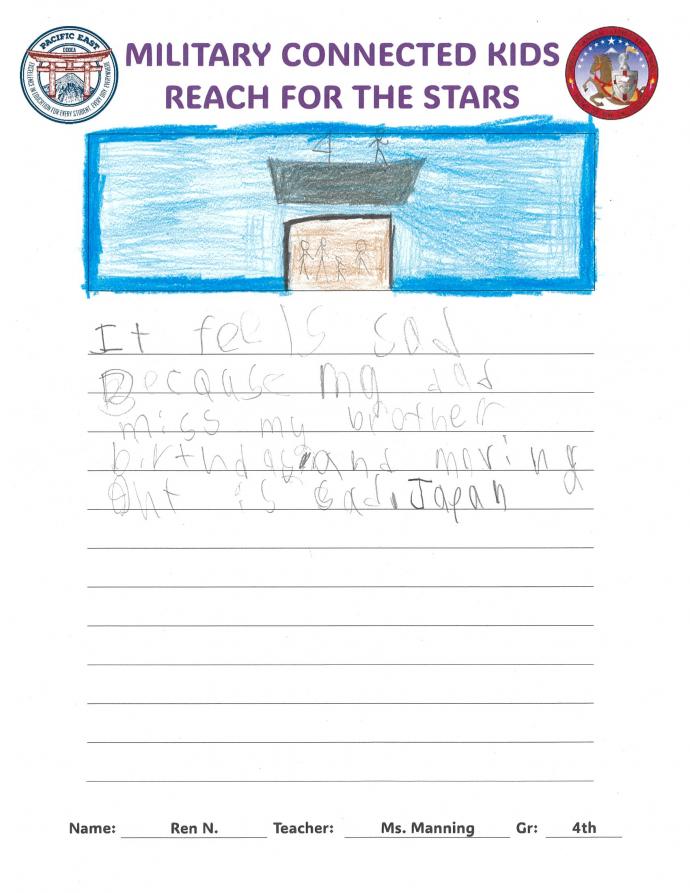 PACIFIC EAST
DODEA
EXCELLENCE IN EDUCATION FOR EVERY STUDENT, EVERY DAY, EVERYWHERE
MILITARY CONNECTED KIDS
REACH FOR THE STARS
It feels sad
Because my dad
miss my brother
birthday and moving
Out is sad. Japan
Name: Ren N. Teacher: Ms. Manning Gr: 4th